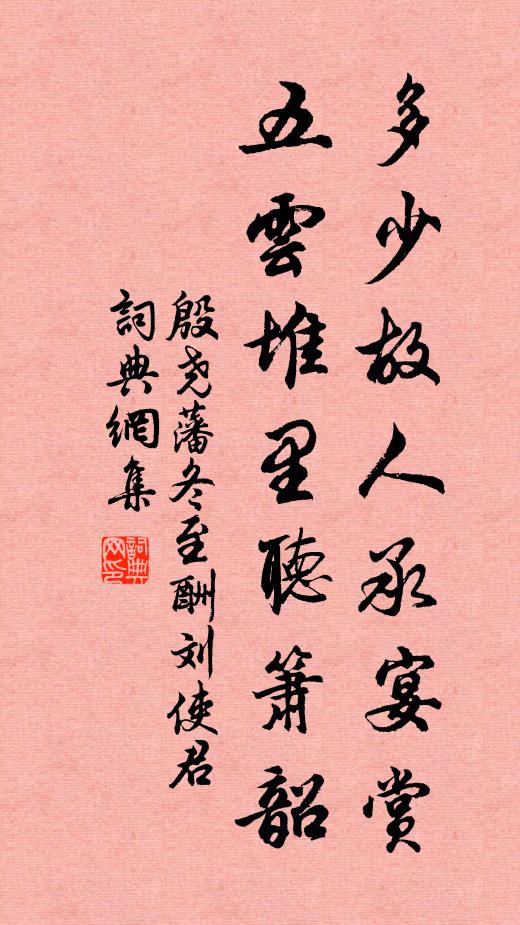 多少故人承宴赏
五雲堆里聽簫韶
殷尧藩冬至酬刘使君
詞典網集
詞典网印